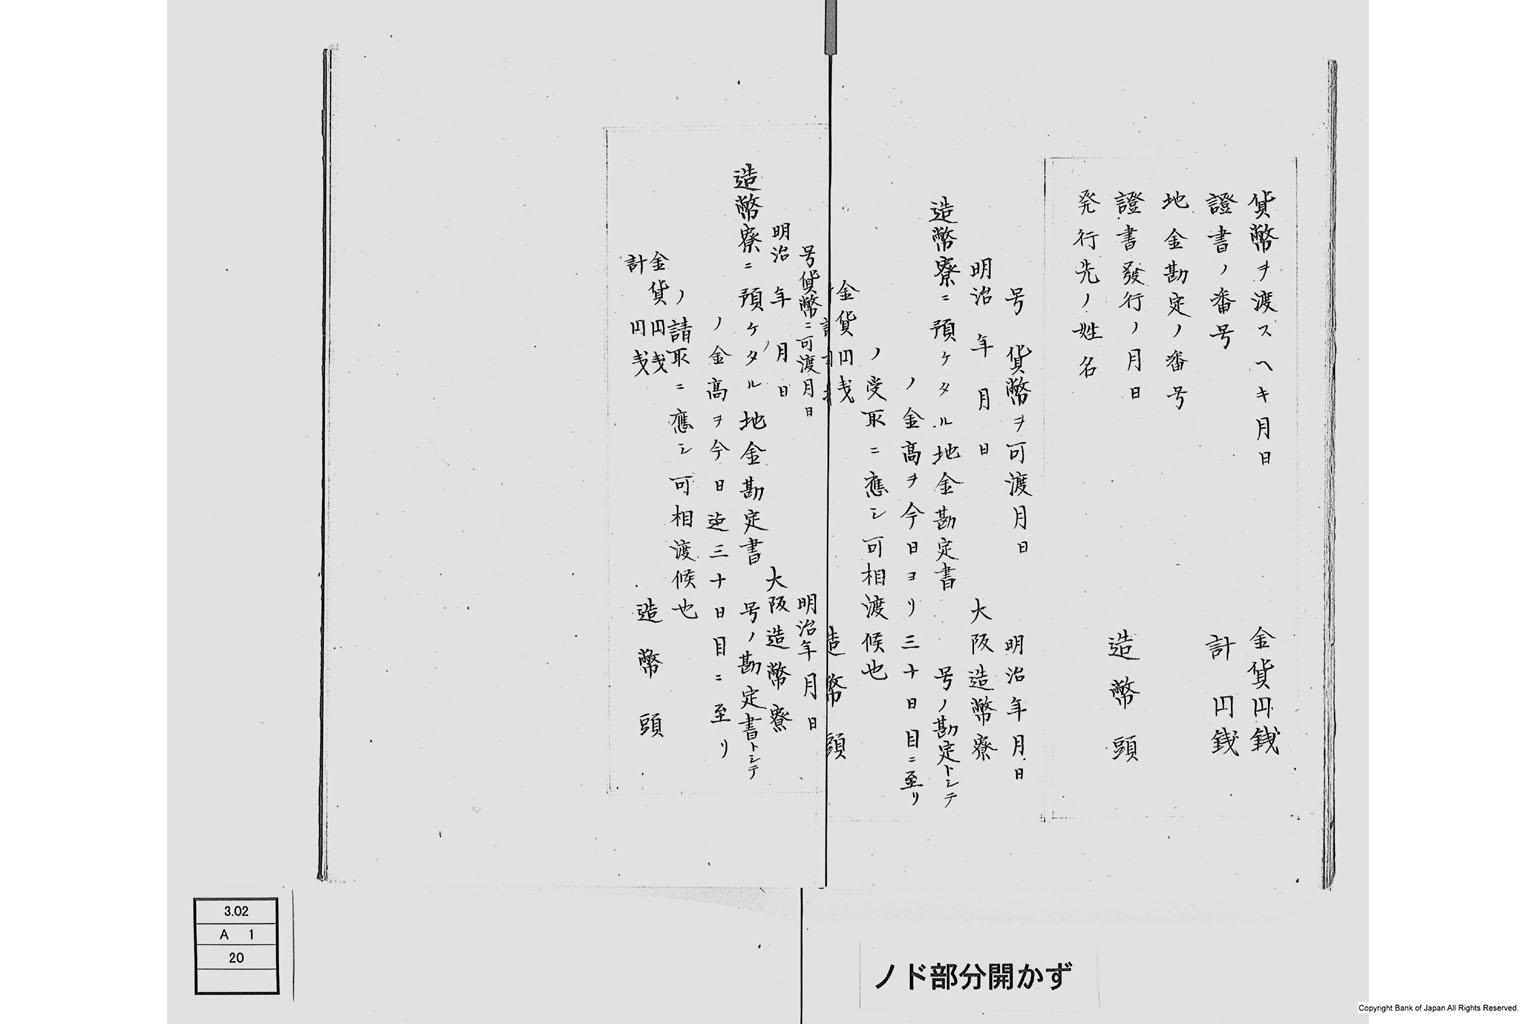 貨幣ヲ渡スヘキ月日
金貨円銭
證書ノ番号
計 円銭
地金勘定ノ番号
證書發行ノ月日
造幣頭
発行先ノ姓名
号 貨幣ヲ可渡月日
明治年月日
明治 年 月 日
大阪造幣寮
造幣寮ニ預ケタル地金勘定書 号ノ勘定トシテ
ノ金高ヲ今日ヨリ三十日目ニ至リ
ノ受取ニ應シ可相渡候也
金貨円戔
造幣頭
号貨幣ニ可渡月日
明治年月日
明治 年 月 日
大阪造幣寮
造幣寮ニ預ケタル地金勘定書 号ノ勘定書トシテ
ノ金高ヲ今日迄三十日目ニ至リ
ノ請取ニ應シ可相渡候也
金貨円戔
計 円戔
造幣頭
3.02
A 1
20
ノド部分開かず
Copyright Bank of Japan All Rights Reserved.